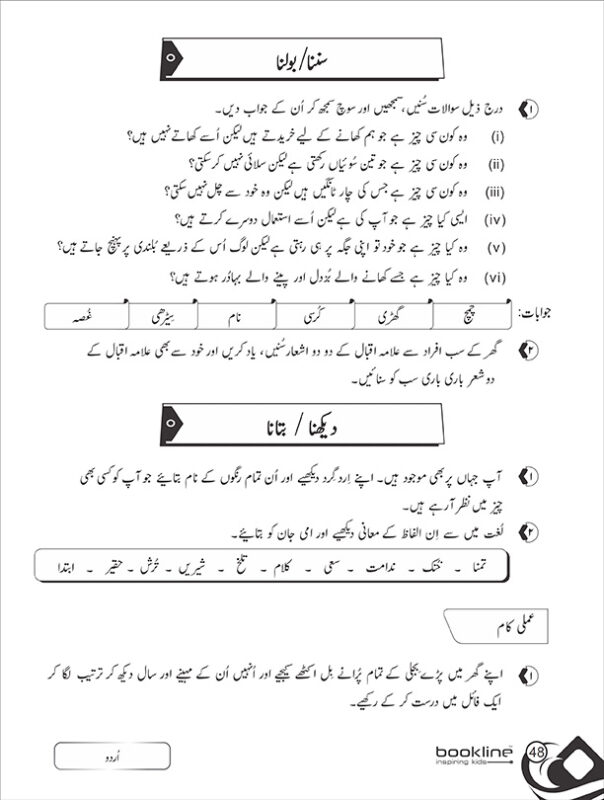 سننا/بولنا
۱ درج ذیل سوالات سُنیں، سمجھیں اور سوچ سمجھ کر اُن کے جواب دیں۔
(i) وہ کون سی چیز ہے جو ہم کھانے کے لیے خریدتے ہیں لیکن اُسے کھاتے نہیں ہیں؟
(ii) وہ کون سی چیز ہے جو تین سُوئیاں رکھتی ہے لیکن سلائی نہیں کرسکتی؟
(iii) وہ کون سی چیز ہے جس کی چار ٹانگیں ہیں لیکن وہ خود سے چل نہیں سکتی؟
(iv) ایسی کیا چیز ہے جو آپ کی ہے لیکن اُسے استعمال دوسرے کرتے ہیں؟
(v) وہ کیا چیز ہے جو خود تو اپنی جگہ پر ہی رہتی ہے لیکن لوگ اُس کے ذریعے بُلندی پر پہنچ جاتے ہیں؟
(vi) وہ کیا چیز ہے جسے کھانے والے بُزدل اور پینے والے بہادُر ہوتے ہیں؟
جوابات: چمچ گھڑی کُرسی نام سِیڑھی غُصہ
۲ گھر کے سب افراد سے علامہ اقبال کے دو دو اشعار سُنیں، یاد کریں اور خود سے بھی علامہ اقبال کے
دو شعر باری باری سب کو سنائیں۔
دیکھنا / بتانا
۱ آپ جہاں پر بھی موجود ہیں۔ اپنے اِرد گِرد دیکھیے اور اُن تمام رنگوں کے نام بتایئے جو آپ کو کسی بھی
چیز میں نظر آرہے ہیں۔
۲ لُغت میں سے اِن الفاظ کے معانی دیکھیے اور امی جان کو بتایئے۔
تمنا ۔ خُنک ۔ ندامت ۔ سعی ۔ کلام ۔ تلخ ۔ شیریں ۔ تُرش ۔ حقیر ۔ ابتدا
عملی کام
۱ اپنے گھر میں پڑے بجلی کے تمام پُرانے بِل اکٹھے کیجیے اور اُنہیں اُن کے مہینے اور سال دیکھ کر ترتیب لگا کر
ایک فائل میں درست کر کے رکھیے۔
اُردو
bookline 48
inspiring kids